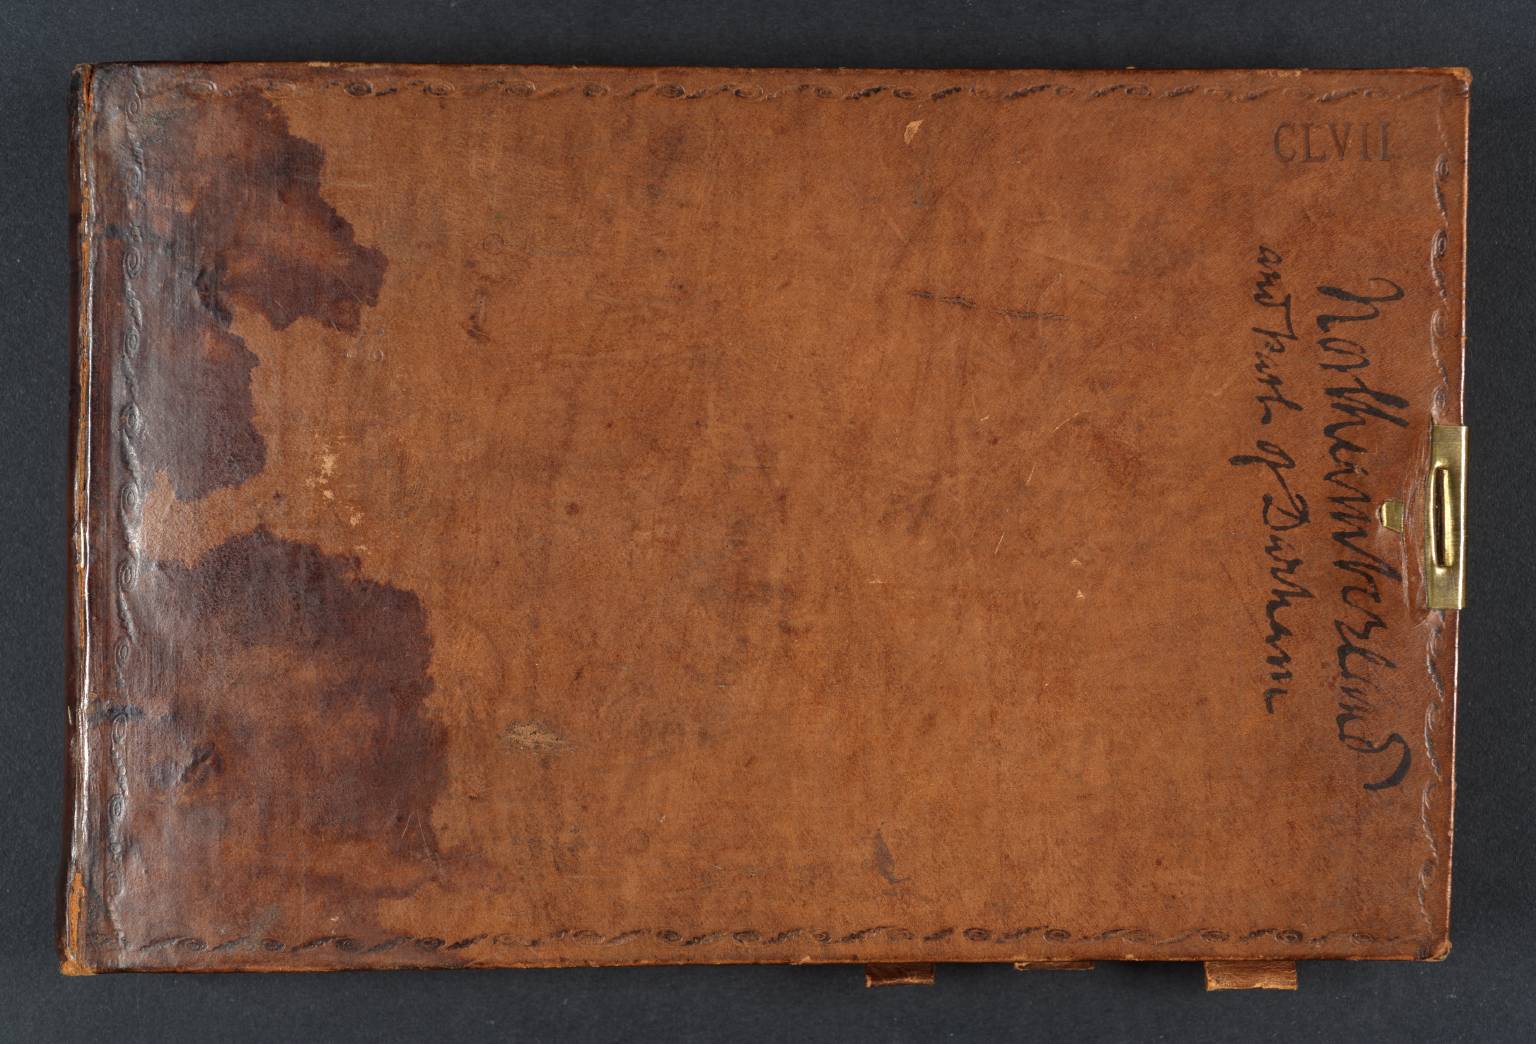 CLVII
Northumberland
and part of Durham